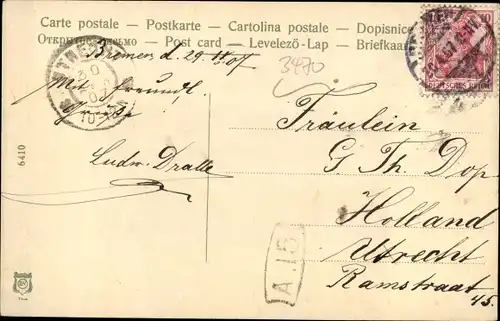 Carte postale – Postkarte – Cartolina postale – Dopisnice
Открытое письмо – Post card – Levelező-Lap – Briefkaart
Bremen d. 29. 07
Mit freundl.
Grüße
Ludw. Dralle
3470
Fräulein
G. Th. Dop
Holland
Utrecht
Ramstraat
45.
A.15
6410
DEUTSCHES REICH
10